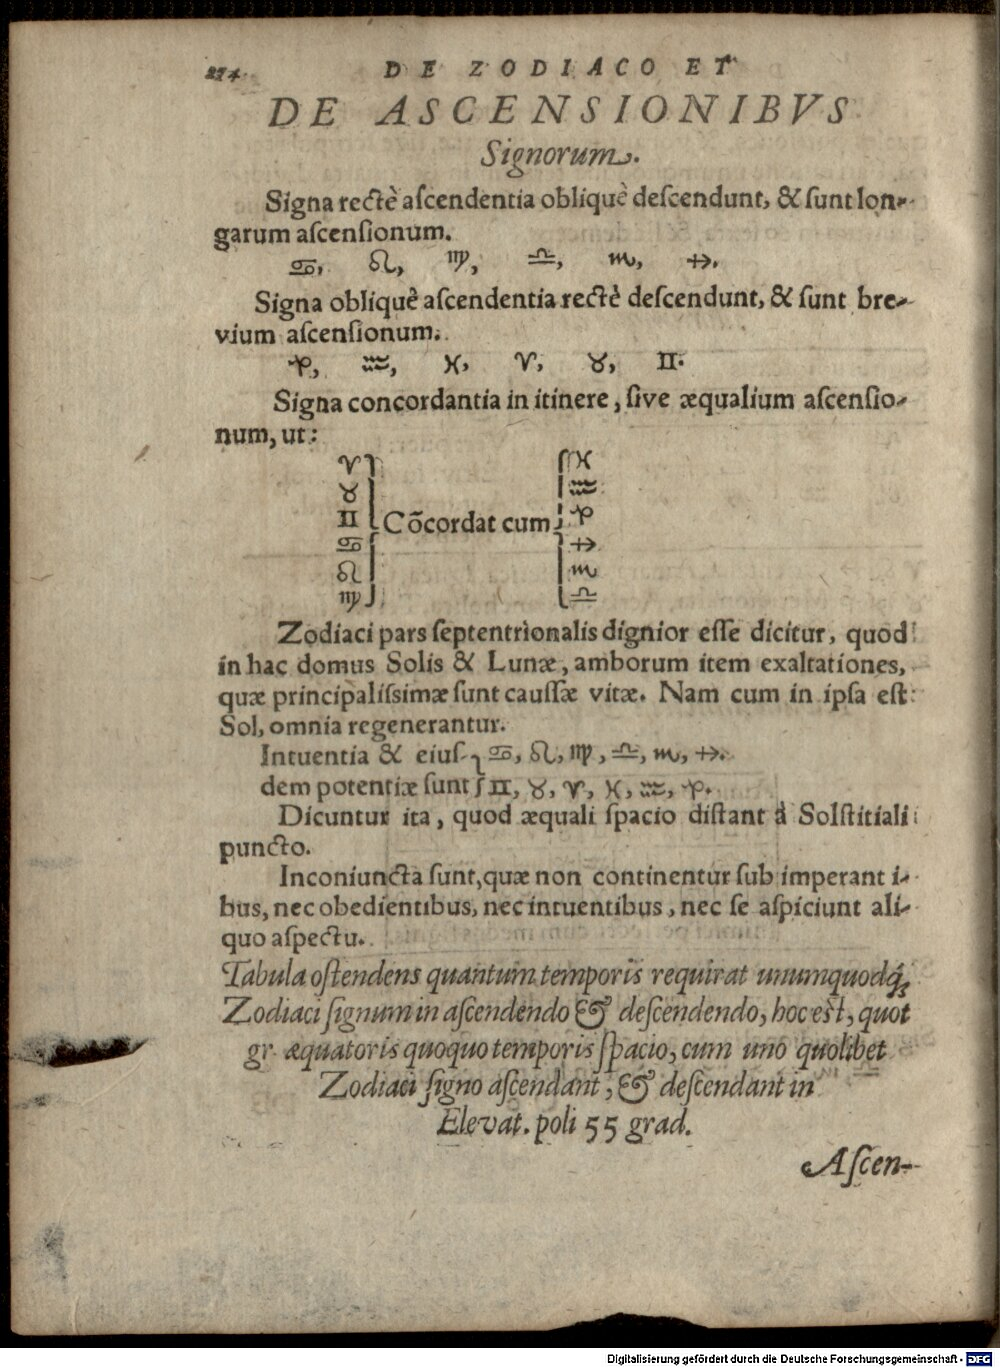 274 DE ZODIACO ET
DE ASCENSIONIBVS
Signorum.
Signa rectè aſcendentia obliquè deſcendunt, & ſunt lon-
garum aſcenſionum.
♋, ♌, ♍, ♎, ♏, ♐.
Signa obliquè aſcendentia rectè deſcendunt, & ſunt bre-
vium aſcenſionum.
♑, ♒, ♓, ♈, ♉, ♊.
Signa concordantia in itinere, ſive æqualium aſcenſio-
num, ut:
♈ ♓
♉ ♒
♊ Cõcordat cum ♑
♋ ♐
♌ ♏
♍ ♎
Zodiaci pars ſeptentrionalis dignior eſſe dicitur, quod
in hac domus Solis & Lunæ, amborum item exaltationes,
quæ principaliſsimæ ſunt cauſſæ vitæ. Nam cum in ipſa eſt
Sol, omnia regenerantur.
Intuentia & eiuſ- ♋, ♌, ♍, ♎, ♏, ♐.
dem potentiæ ſunt ♊, ♉, ♈, ♓, ♒, ♑.
Dicuntur ita, quod æquali ſpacio diſtant à Solſtitiali
puncto.
Inconiuncta ſunt, quæ non continentur ſub imperanti-
bus, nec obedientibus, nec intuentibus, nec ſe aſpiciunt ali-
quo aſpectu.
Tabula oſtendens quantum temporis requirat unumquodq́;
Zodiaci ſignum in aſcendendo & deſcendendo, hoc eſt, quot
gr. æquatoris quoquo temporis ſpacio, cum uno quolibet
Zodiaci ſigno aſcendant, & deſcendant in
Elevat. poli 55 grad.
Aſcen-
Digitalisierung gefördert durch die Deutsche Forschungsgemeinschaft - DFG